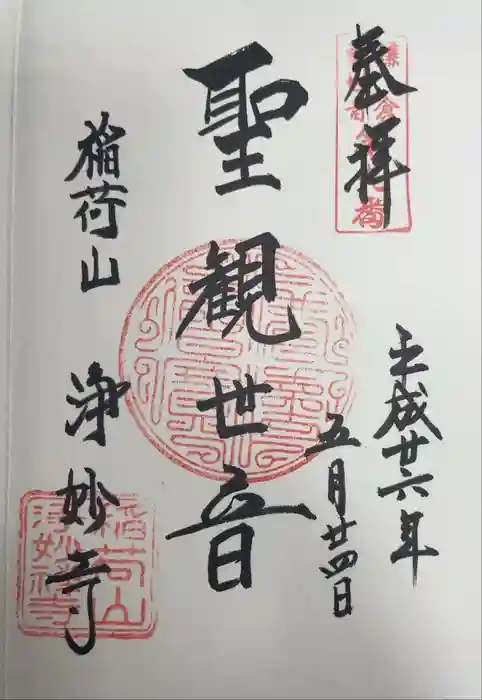 奉拝
平成廿六年
五月廿四日
聖観世音
稲荷山
浄妙寺
稲荷山
浄妙禅寺